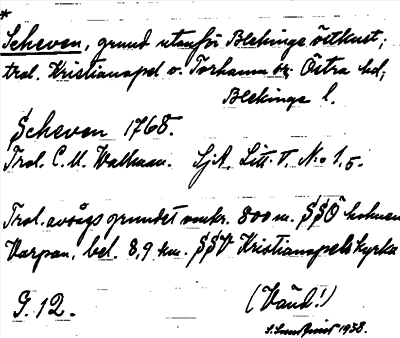 *
Scheven, grund utanför Blekinge östkust;
trol. Kristianopel o. Torhamn sn; Östra hd;
Blekinge l.
Scheven 1768.
Trol. C. U. Wallman. SjA. Litt. T. No 1,5.
Trol. avsågs grundet omkr. 800 m. SSÖ holmen
Varpan, bel. 8,9 km. SSV Kristianopels kyrka
G. 12.
(Vänd!)
1938.